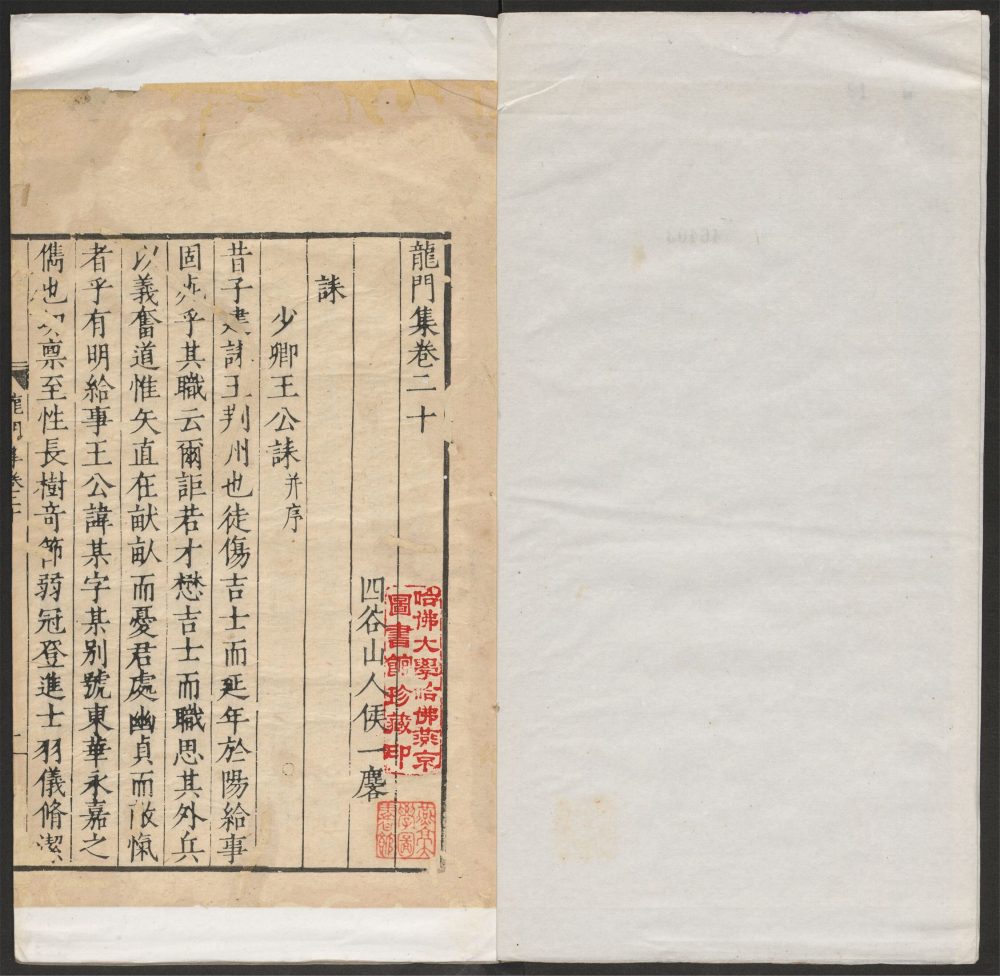 龍門集卷二十
四谷山人侯一麐
誄
少卿王公誄并序
昔子建誄王荆州也徒傷吉士而延年於陽給事
固乎其職云爾詎若才懋吉士而職思其外兵
以義奮道惟矢直在畎畝而憂君處幽貞而愾
者乎有明給事王公諱某字某别號東華永嘉之
儁也禀至性長樹竒節弱冠登進士羽儀脩潔
龍門集卷二十
哈佛大學哈佛燕京
圖書館珍藏印